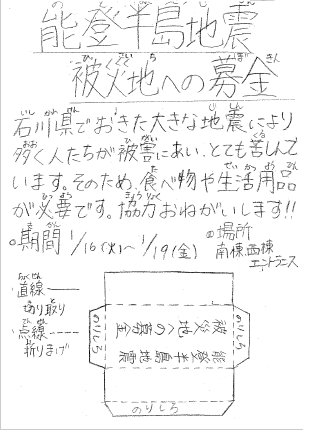 能登半島地震
被災地への募金
石川県でおきた大きな地震により
多く人たちが被害にあい、とても苦しんで
います。そのため、食べ物や生活用品
が必要です。協力おねがいします!!
。期間 1/16(火)〜1/19(金)
◎場所
南棟、西棟
エントランス
直線——
切り取り
点線----
折りまげ
のりしろ
のりしろ
のりしろ
能登半島地震
被災地への募金